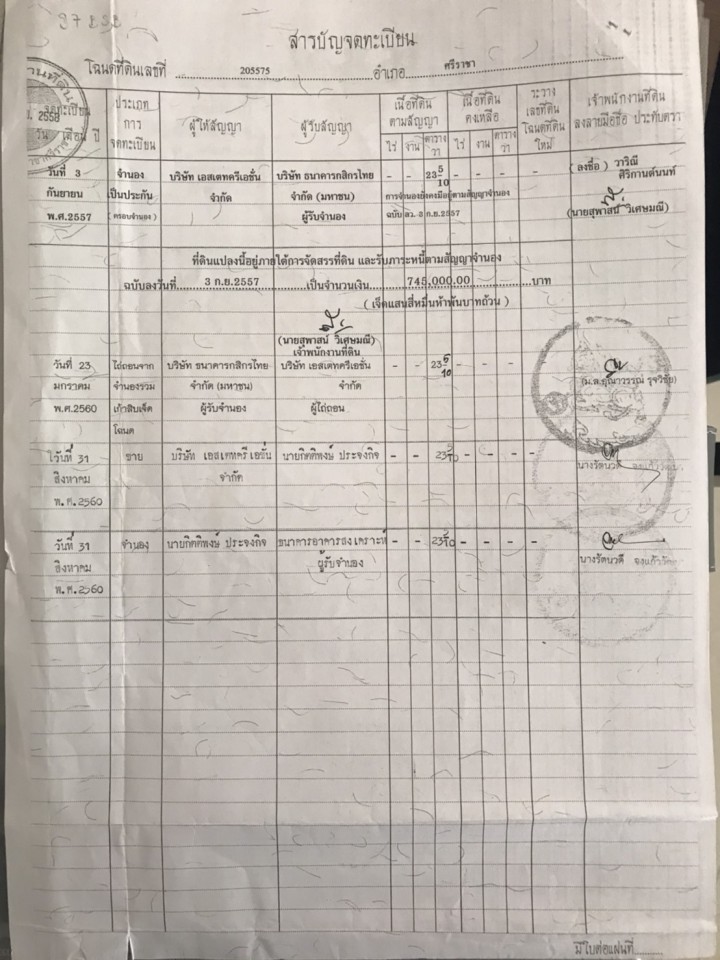 97232
สารบัญจดทะเบียน
โฉนดที่ดินเลขที่ 205575 อำเภอ ศรีราชา
จดทะเบียน วัน เดือน ปี
ประเภทการจดทะเบียน
ผู้ให้สัญญา
ผู้รับสัญญา
เนื้อที่ดินตามสัญญา
ไร่ งาน ตารางวา
เนื้อที่ดินคงเหลือ
ไร่ งาน ตารางวา
ระวาง เลขที่ดิน โฉนดที่ดินใหม่
เจ้าพนักงานที่ดิน ลงลายมือชื่อ ประทับตรา
วันที่ 3 จำนอง บริษัท เอสเตทครีเอชั่น บริษัท ธนาคารกสิกรไทย - - 23 5/10 - - - - (ลงชื่อ) วาริณี
กันยายน เป็นประกัน จำกัด จำกัด (มหาชน) การจำนองยังคงมีอยู่ตามสัญญาจำนอง ศิริกานต์นนท์
พ.ศ.2557 (ครอบจำนอง) ผู้รับจำนอง ฉบับ ลว. 3 ก.ย.2557 (นายสุพาสน์ วิเศษมณี)
ที่ดินแปลงนี้อยู่ภายใต้การจัดสรรที่ดิน และรับภาระหนี้ตามสัญญาจำนอง
ฉบับลงวันที่ 3 ก.ย.2557 เป็นจำนวนเงิน 745,000.00 บาท
( เจ็ดแสนสี่หมื่นห้าพันบาทถ้วน )
(นายสุพาสน์ วิเศษมณี)
เจ้าพนักงานที่ดิน
วันที่ 23 ไถ่ถอนจาก บริษัท ธนาคารกสิกรไทย บริษัท เอสเตทครีเอชั่น - - 23 5/10 - - - -
มกราคม จำนองรวม จำกัด (มหาชน) จำกัด
พ.ศ.2560 เก้าสิบเจ็ด ผู้รับจำนอง ผู้ไถ่ถอน
โฉนด
วันที่ 31 ขาย บริษัท เอสเตทครีเอชั่น นายกิตติพงษ์ ประจงกิจ - - 23 5/10 - - - - นางรัตนวดี
สิงหาคม จำกัด
พ.ศ.2560
วันที่ 31 จำนอง นายกิตติพงษ์ ประจงกิจ ธนาคารอาคารสงเคราะห์ - - 23 5/10 - - - -
สิงหาคม ผู้รับจำนอง นางรัตนวดี
พ.ศ.2560
มีใบต่อแผ่นที่